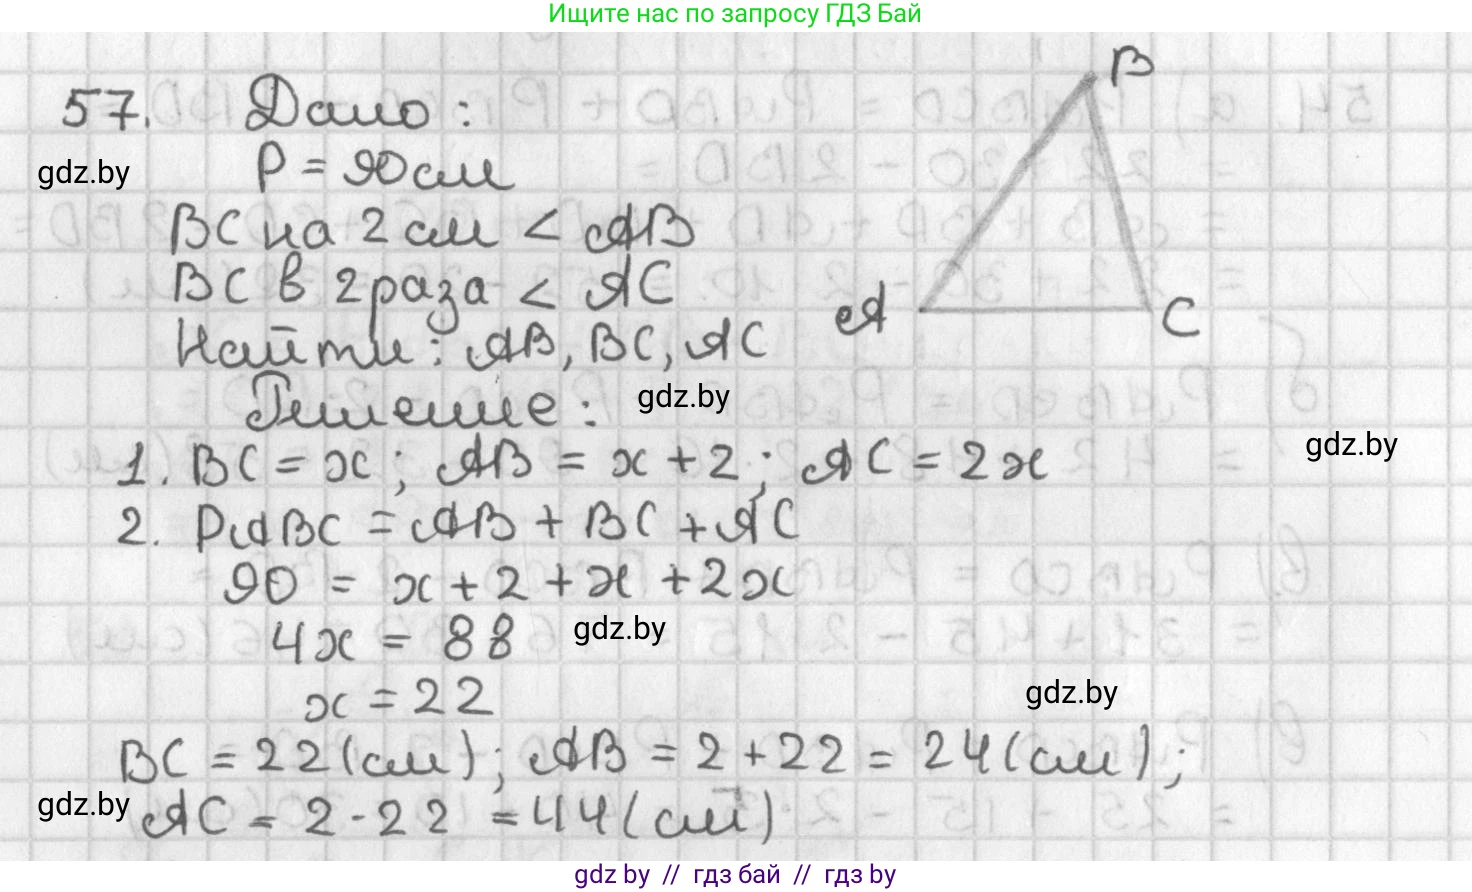 Ищите нас по запросу ГДЗ Бай
57. Дано:
B
gdz.by
P = 90 см
BC на 2 см < AB
BC в 2 раза < AC
A
C
Найти: AB, BC, AC
Решение:
gdz.by
gdz.by
1. BC = x; AB = x + 2; AC = 2x
2. PABC = AB + BC + AC
90 = x + 2 + x + 2x
4x = 88
gdz.by
x = 22
gdz.by
BC = 22 (см); AB = 2 + 22 = 24 (см);
gdz.by
AC = 2 · 22 = 44 (см)
gdz.by // гдз бай // гдз by